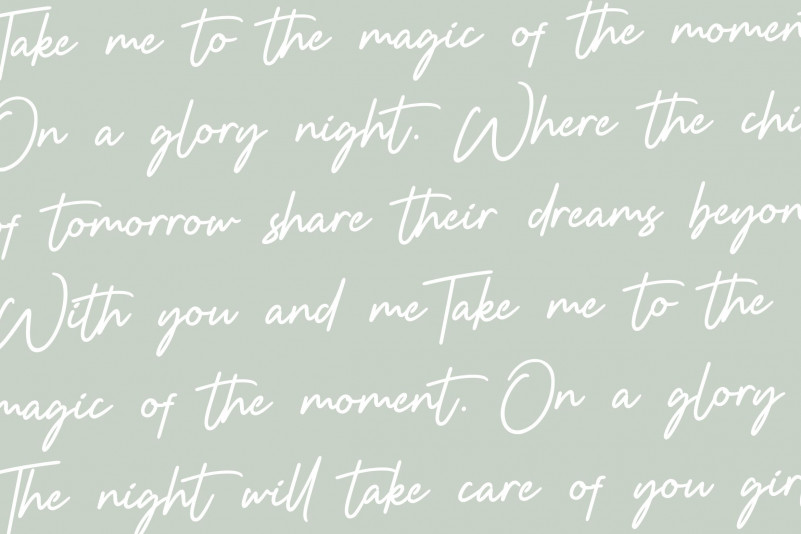 Take me to the magic of the momen
On a glory night. Where the chi
of tomorrow share their dreams beyon
With you and me Take me to the
magic of the moment. On a glory
The night will take care of you gir